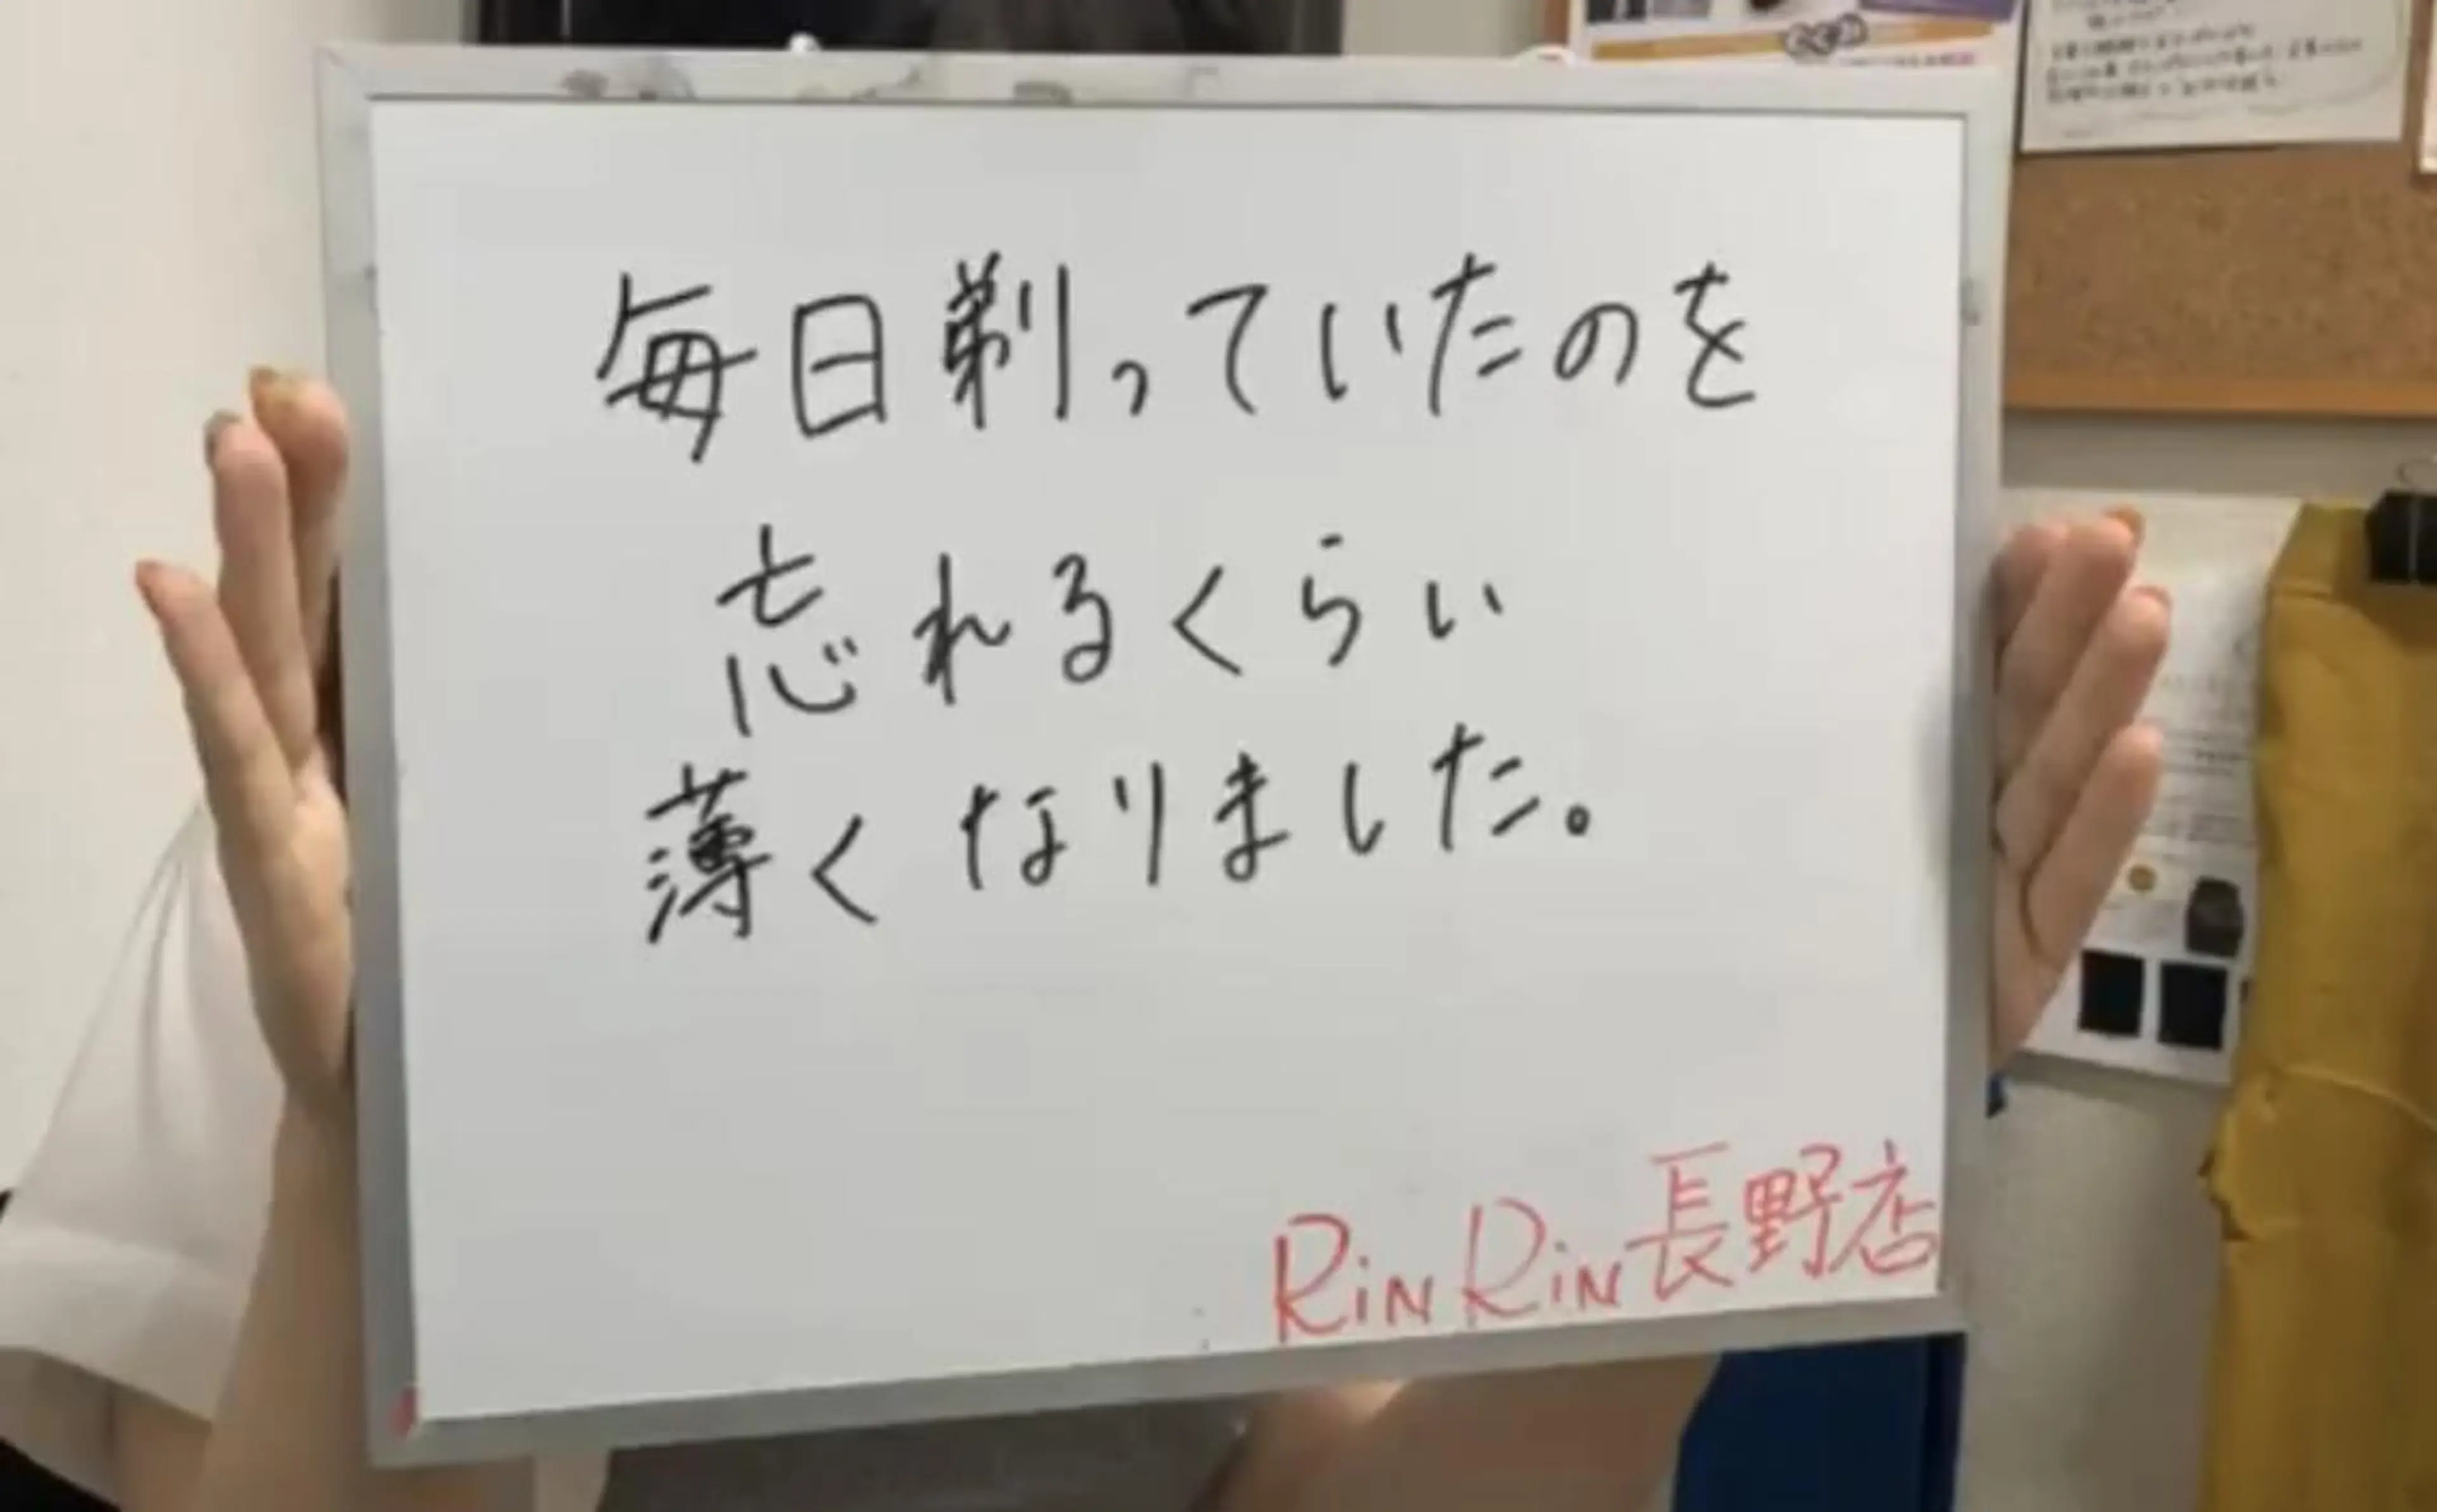 毎日剃っていたのを
忘れるくらい
薄くなりました。
RiNRiN長野店